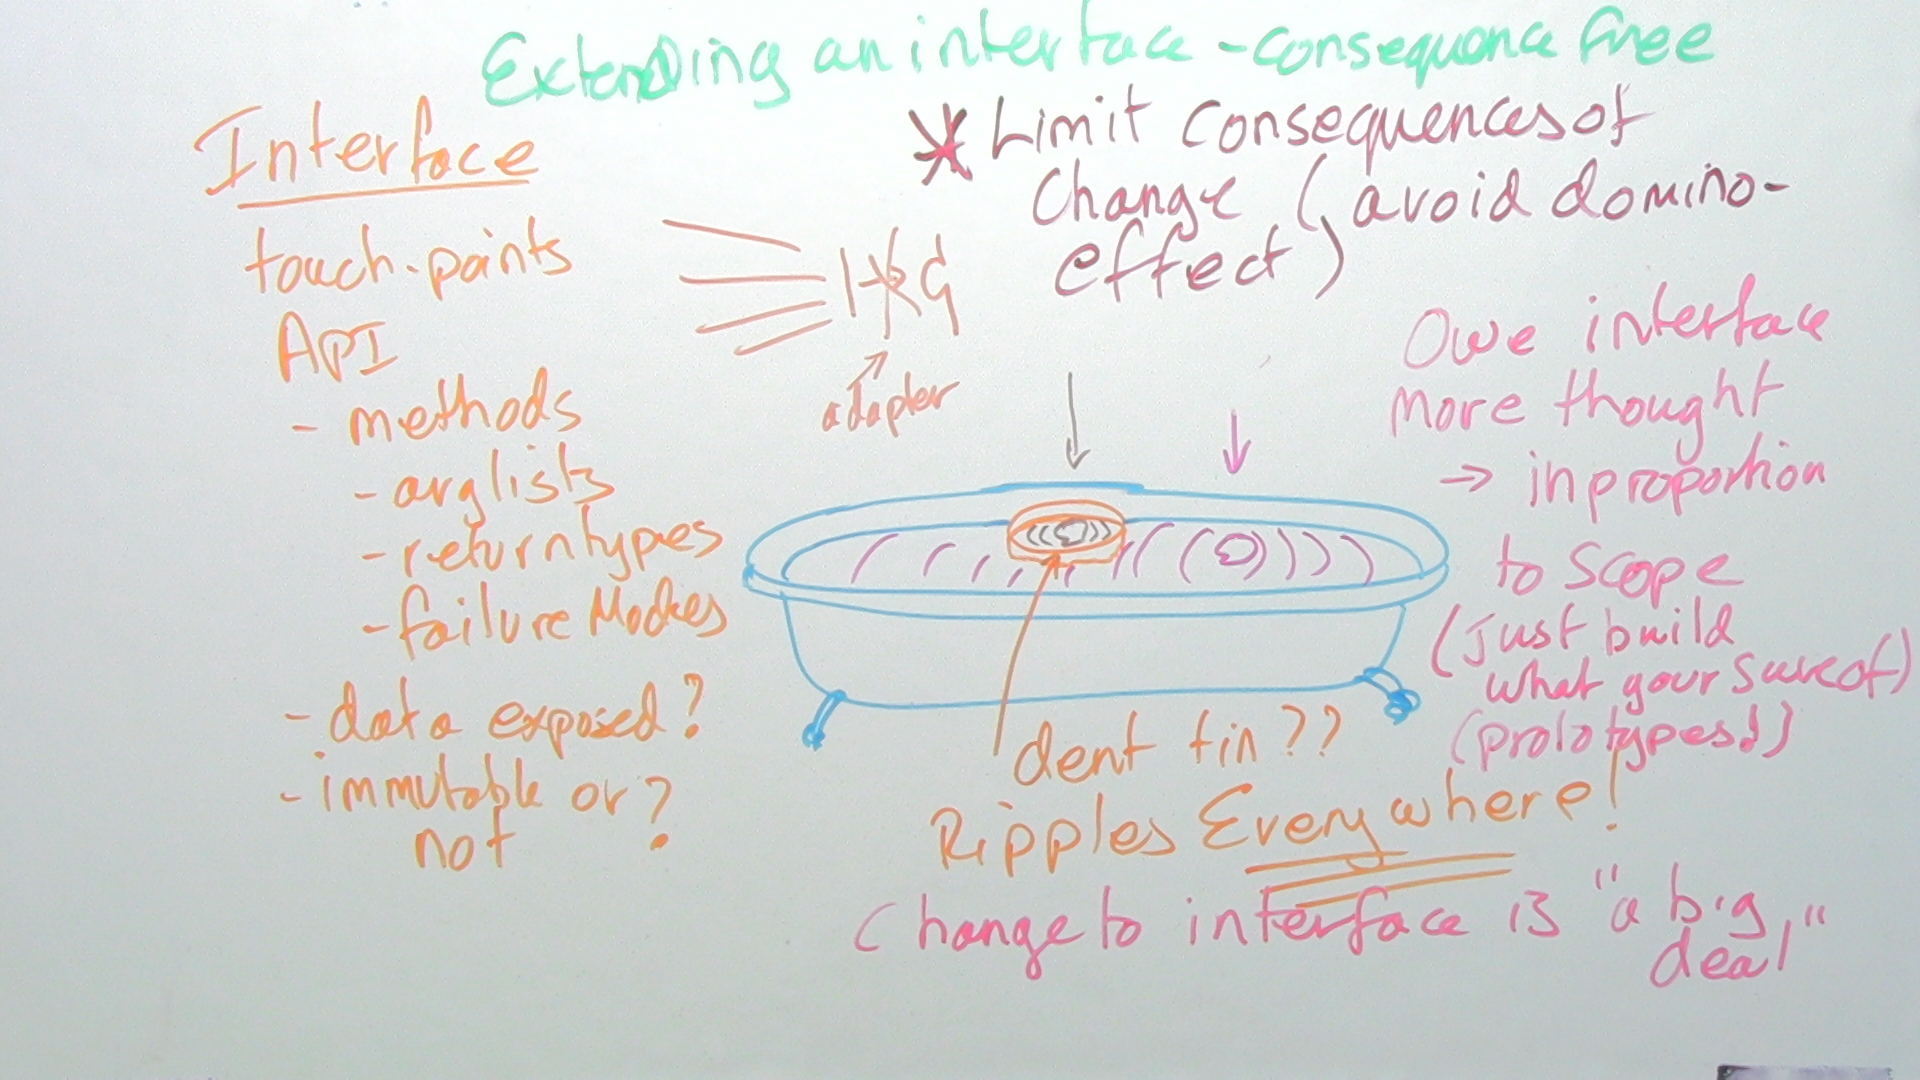 Extending an interface - consequence free
Interface
touch-points
API
- methods
- arglists
- return types
- failure Modes
- data exposed?
- immutable or ?
not
adapter
* Limit consequences of
Change (avoid domino-
effect)
Owe interface
more thought
→ in proportion
to scope
(just build
what your sure of)
(prototypes!)
dent tin??
Ripples Everywhere!
Change to interface is "a big
deal"